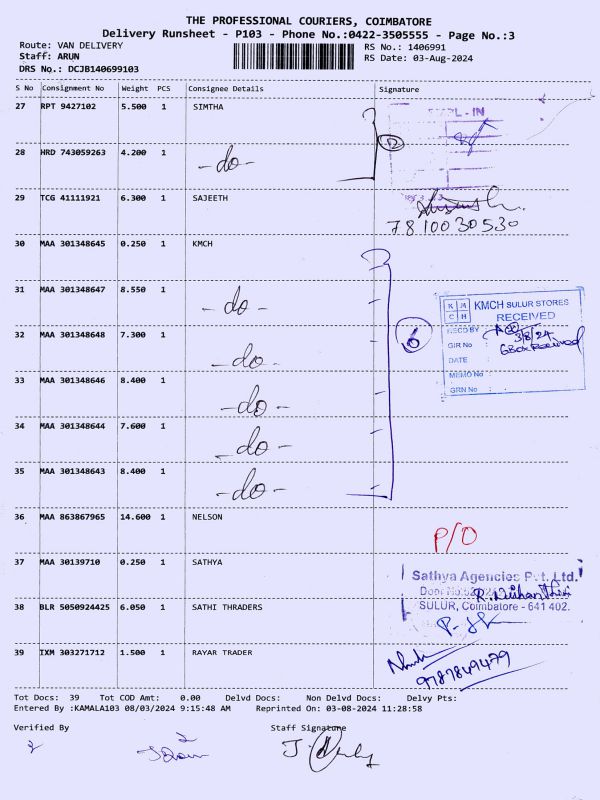 THE PROFESSIONAL COURIERS, COIMBATORE
Delivery Runsheet - P103 - Phone No.:0422-3505555 - Page No.:3
Route: VAN DELIVERY RS No.: 1406991
Staff: ARUN RS Date: 03-Aug-2024
DRS No.: DCJB140699103
S No Consignment No Weight PCS Consignee Details Signature
27 RPT 9427102 5.500 1 SIMTHA
28 HRD 743059263 4.200 1 -do-
29 TCG 41111921 6.300 1 SAJEETH
7810030530
30 MAA 301348645 0.250 1 KMCH
31 MAA 301348647 8.550 1 -do-
KMCH SULUR STORES
RECEIVED
RECD BY
3/8/24
GIR No : 6 Box Received
DATE :
MEMO No :
GRN No :
32 MAA 301348648 7.300 1 -do-
6
33 MAA 301348646 8.400 1 -do-
34 MAA 301348644 7.600 1 -do-
35 MAA 301348643 8.400 1 -do-
36 MAA 863867965 14.600 1 NELSON P/O
37 MAA 30139710 0.250 1 SATHYA
Sathya Agencies Pvt. Ltd.
Door No:
SULUR, Coimbatore - 641 402.
38 BLR 5050924425 6.050 1 SATHI THRADERS
39 IXM 303271712 1.500 1 RAYAR TRADER
9787849479
Tot Docs: 39 Tot COD Amt: 0.00 Delvd Docs: Non Delvd Docs: Delvy Pts:
Entered By :KAMALA103 08/03/2024 9:15:48 AM Reprinted On: 03-08-2024 11:28:58
Verified By Staff Signature